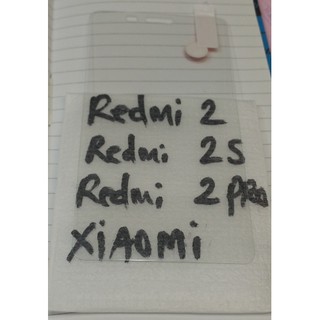 Redmi 2
Redmi 2S
Redmi 2 PRO
XiAOMi